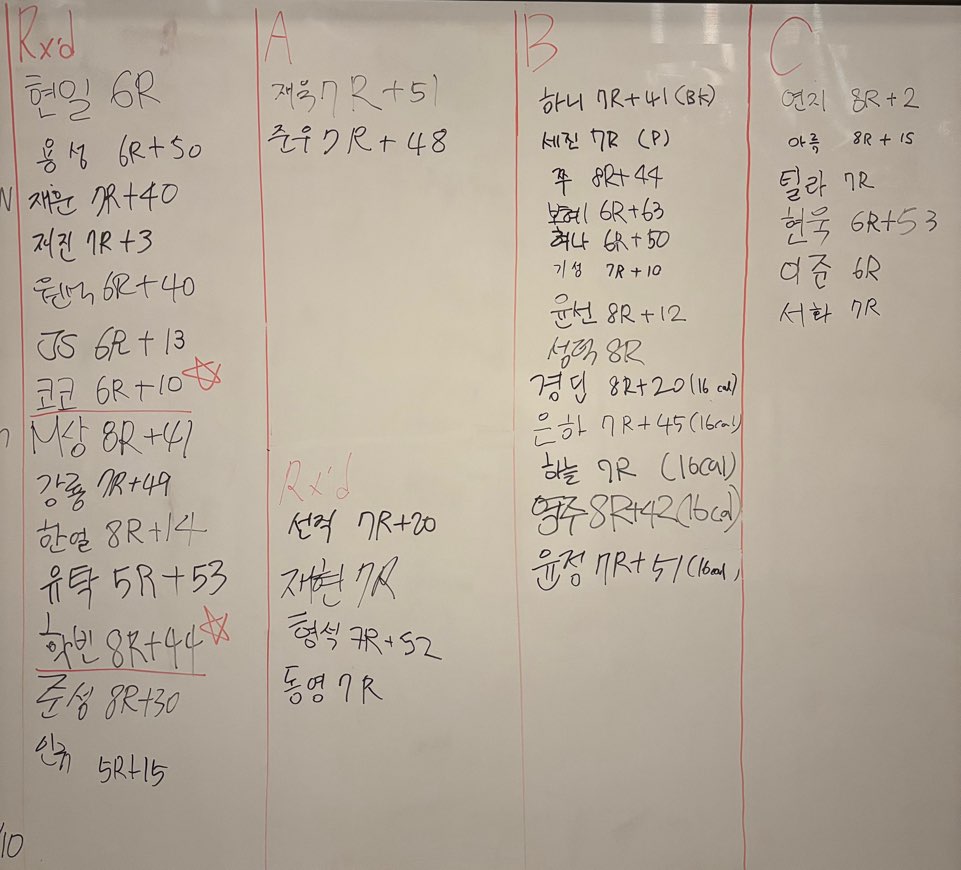 Rx'd
현일 6R
용성 6R+50
재윤 7R+40
저진 7R+3
6R+40
JS 6R+13
코코 6R+10
M상 8R+41
강룡 7R+49
한열 8R+14
유탁 5R+53
학빈 8R+44
준성 8R+30
인규 5R+15
/10
A
재욱 7R+51
준우 7R+48
Rx'd
선적 7R+20
재현 7R
형석 7R+52
동영 7R
B
하니 7R+41(BK)
세진 7R (P)
쭈 8R+44
보혜 6R+63
6R+50
기성 7R+10
윤선 8R+12
성덕 8R
경민 8R+20(16 cal)
은하 7R+45(16cal)
하늘 7R (16cal)
영주 8R+42(16cal)
윤정 7R+51(16cal)
C
연지 8R+2
아름 8R+15
틸라 7R
현욱 6R+53
이준 6R
서화 7R